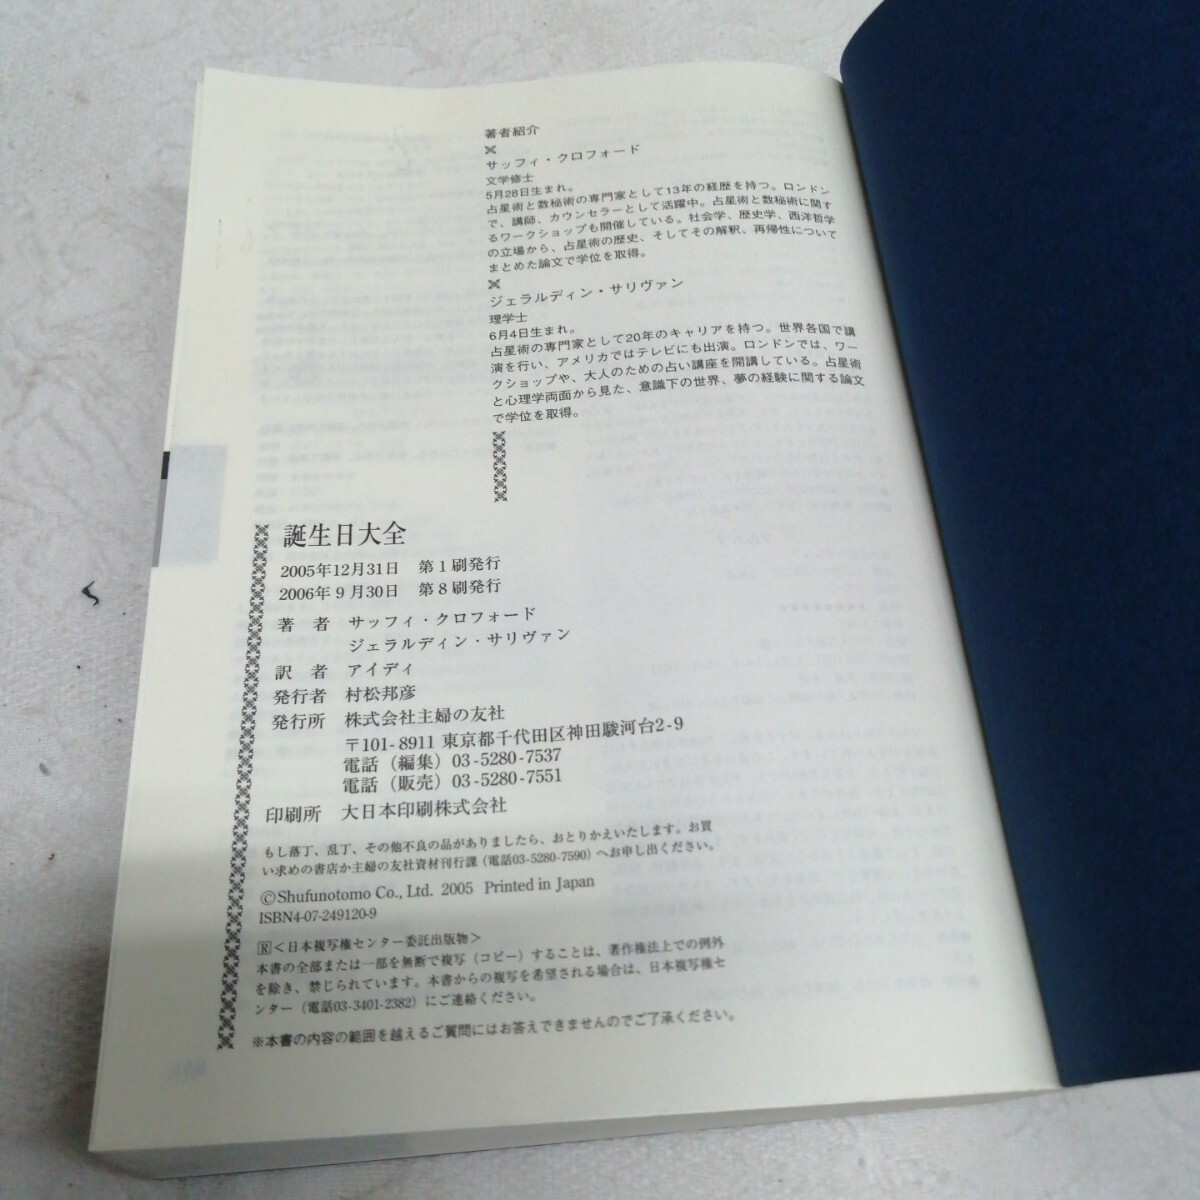 著者紹介
サッフィ・クロフォード
文学修士
5月28日生まれ。
占星術と数秘術の専門家として13年の経歴を持つ。ロンドン
で、講師、カウンセラーとして活躍中。占星術と数秘術に関す
るワークショップも開催している。社会学、歴史学、西洋哲学
の立場から、占星術の歴史、そしてその解釈、再帰性について
まとめた論文で学位を取得。
ジェラルディン・サリヴァン
理学士
6月4日生まれ。
占星術の専門家として20年のキャリアを持つ。世界各国で講
演を行い、アメリカではテレビにも出演。ロンドンでは、ワー
クショップや、大人のための占い講座を開講している。占星術
と心理学両面から見た、意識下の世界、夢の経験に関する論文
で学位を取得。
誕生日大全
2005年12月31日 第1刷発行
2006年9月30日 第8刷発行
著者 サッフィ・クロフォード
ジェラルディン・サリヴァン
訳者 アイディ
発行者 村松邦彦
発行所 株式会社主婦の友社
〒101-8911 東京都千代田区神田駿河台2-9
電話（編集）03-5280-7537
電話（販売）03-5280-7551
印刷所 大日本印刷株式会社
もし落丁、乱丁、その他不良の品がありましたら、おとりかえいたします。お買
い求めの書店か主婦の友社資材刊行課（電話03-5280-7590）へお申し出ください。
©Shufunotomo Co., Ltd. 2005 Printed in Japan
ISBN4-07-249120-9
R＜日本複写権センター委託出版物＞
本書の全部または一部を無断で複写（コピー）することは、著作権法上での例外
を除き、禁じられています。本書からの複写を希望される場合は、日本複写権セ
ンター（電話03-3401-2382）にご連絡ください。
※本書の内容の範囲を越えるご質問にはお答えできませんのでご了承ください。